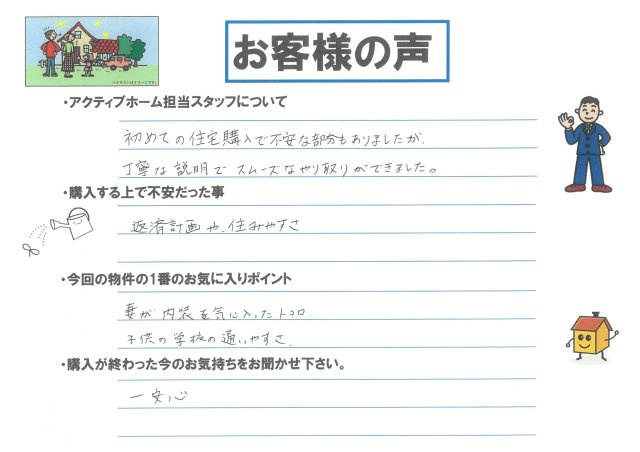 お客様の声
※イラストはイメージです。
・アクティブホーム担当スタッフについて
初めての住宅購入で不安な部分もありましたが、
丁寧な説明でスムーズなやり取りができました。
・購入する上で不安だった事
返済計画や、住みやすさ
・今回の物件の1番のお気に入りポイント
妻が内装を気に入ったトコロ.
子供の学校の通いやすさ.
・購入が終わった今のお気持ちをお聞かせ下さい。
一安心